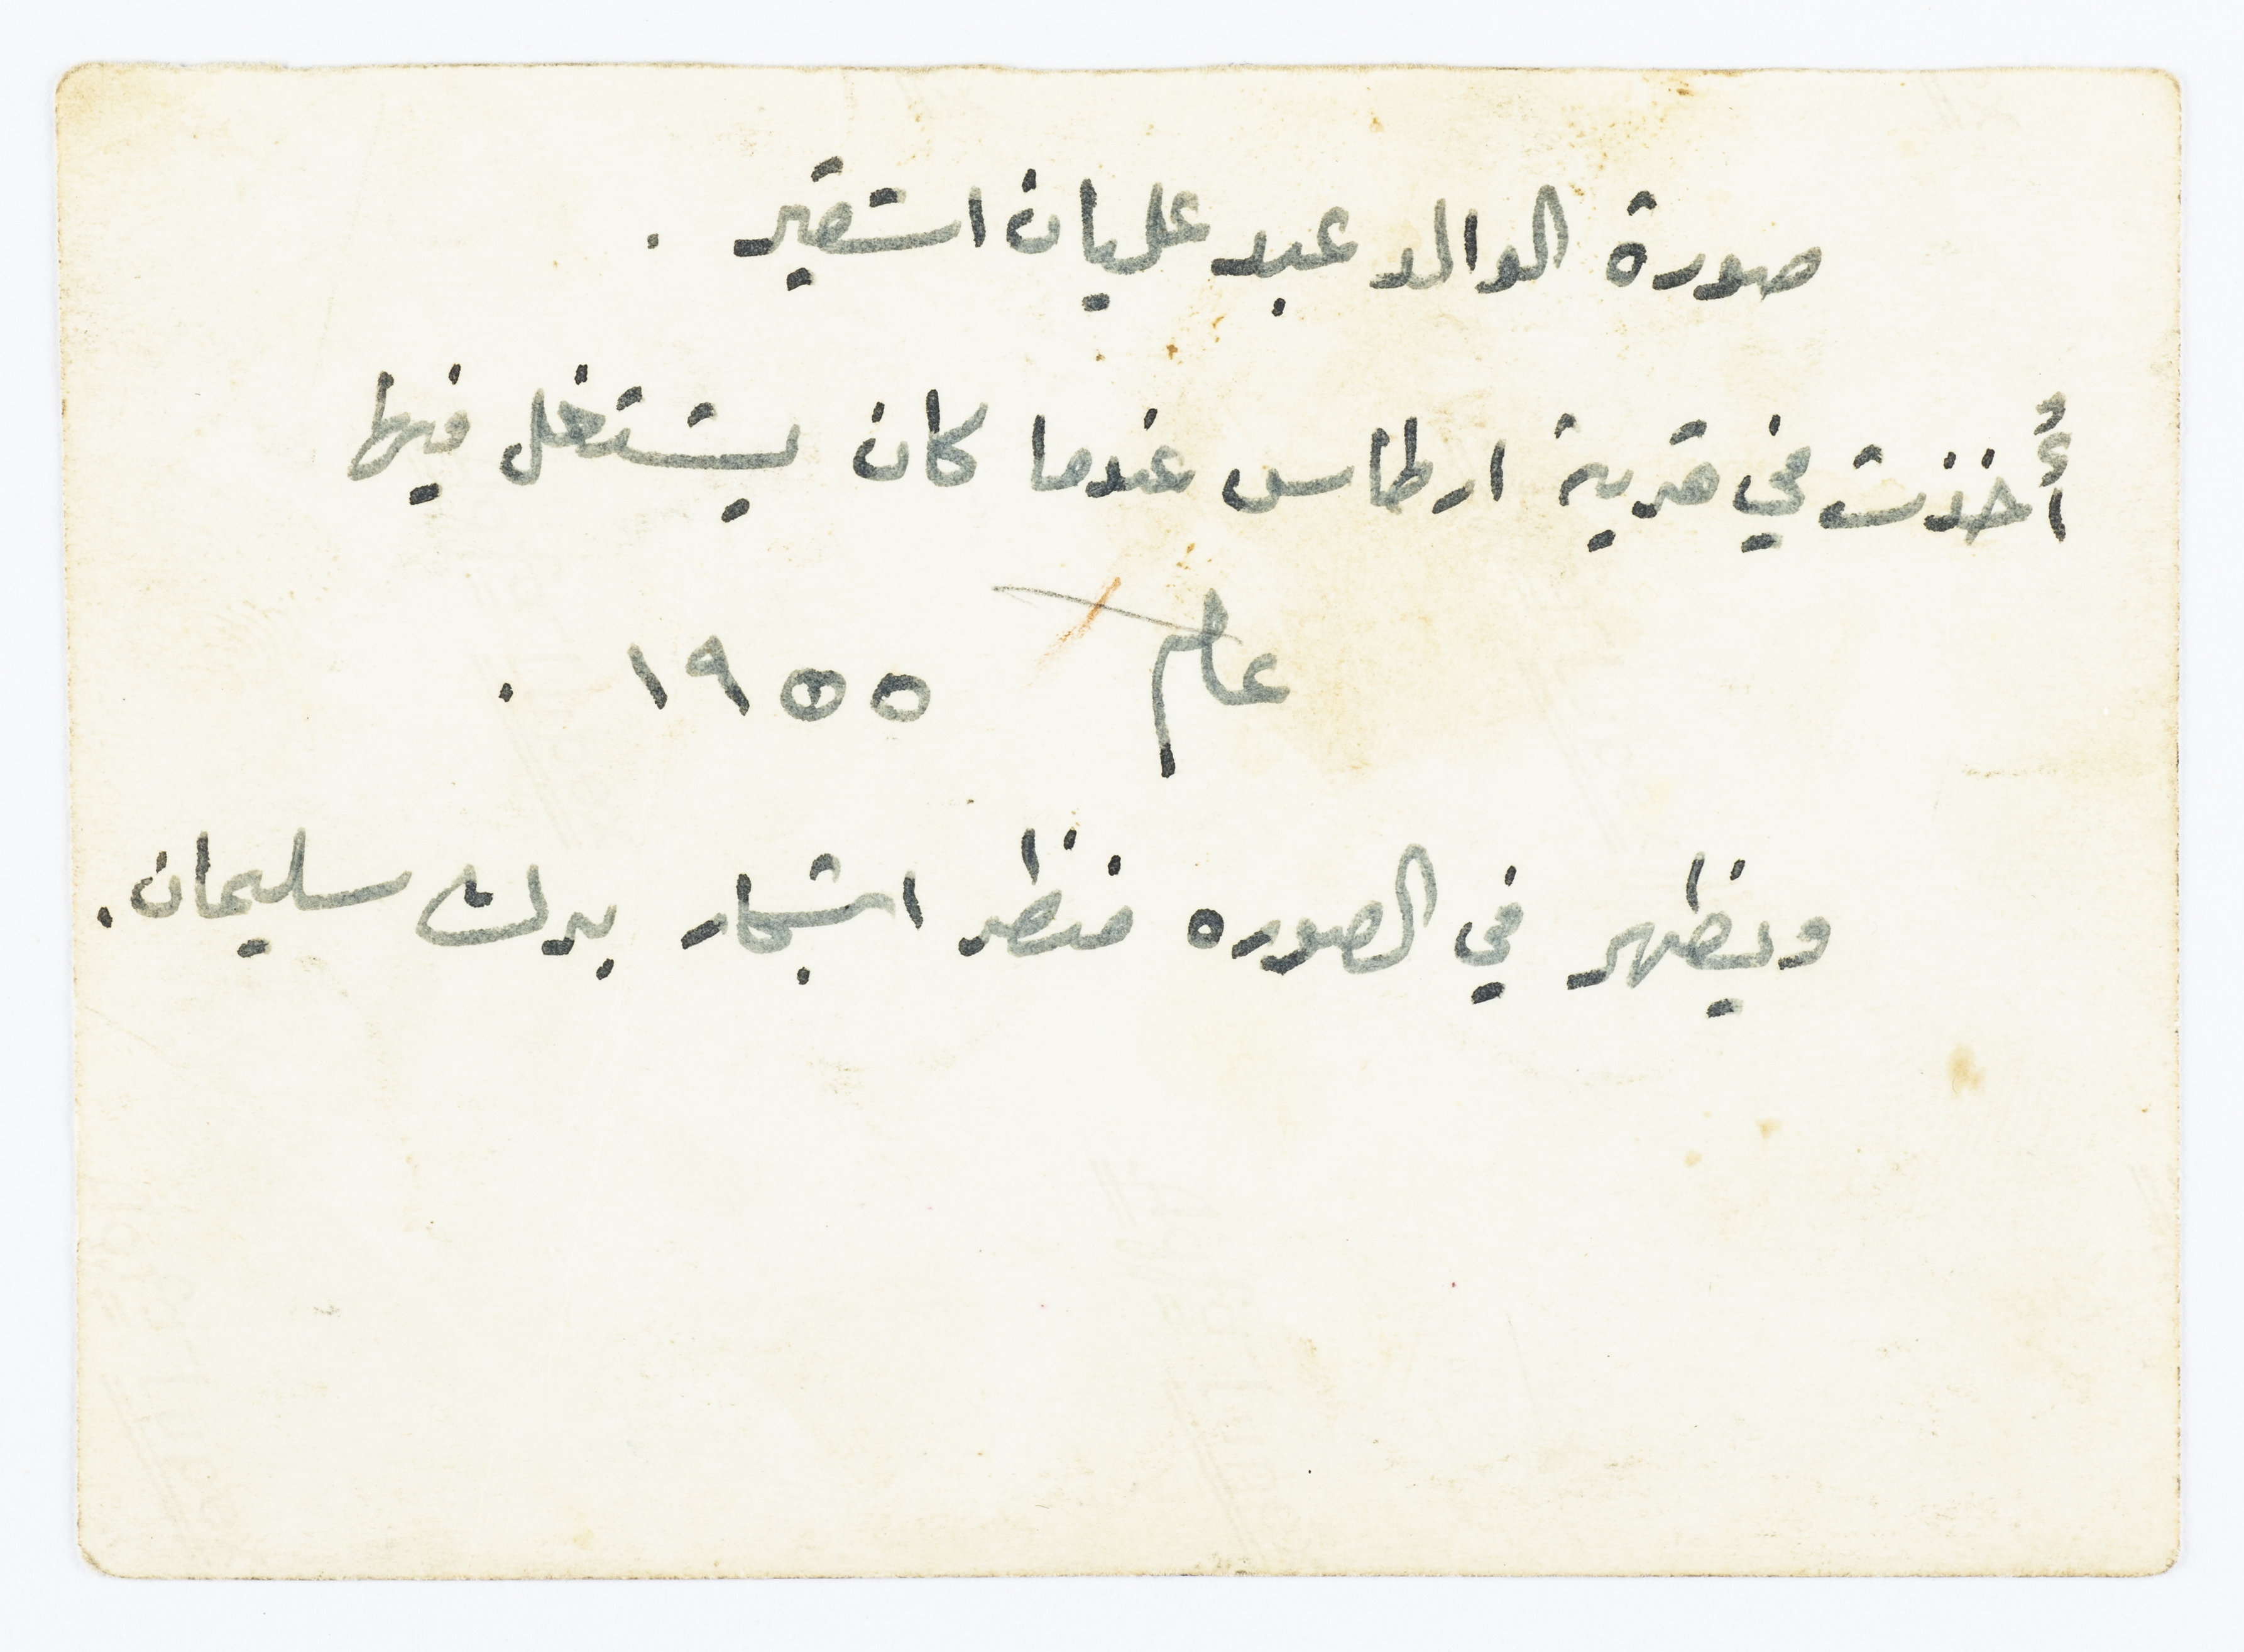 صورة الوالد عبد عليان اشقير .
أُخذت في قرية ارطاس عندما كان يشتغل فيها
عام ١٩٥٥ .
ويظهر في الصوره منظر اشجار برك سليمان .